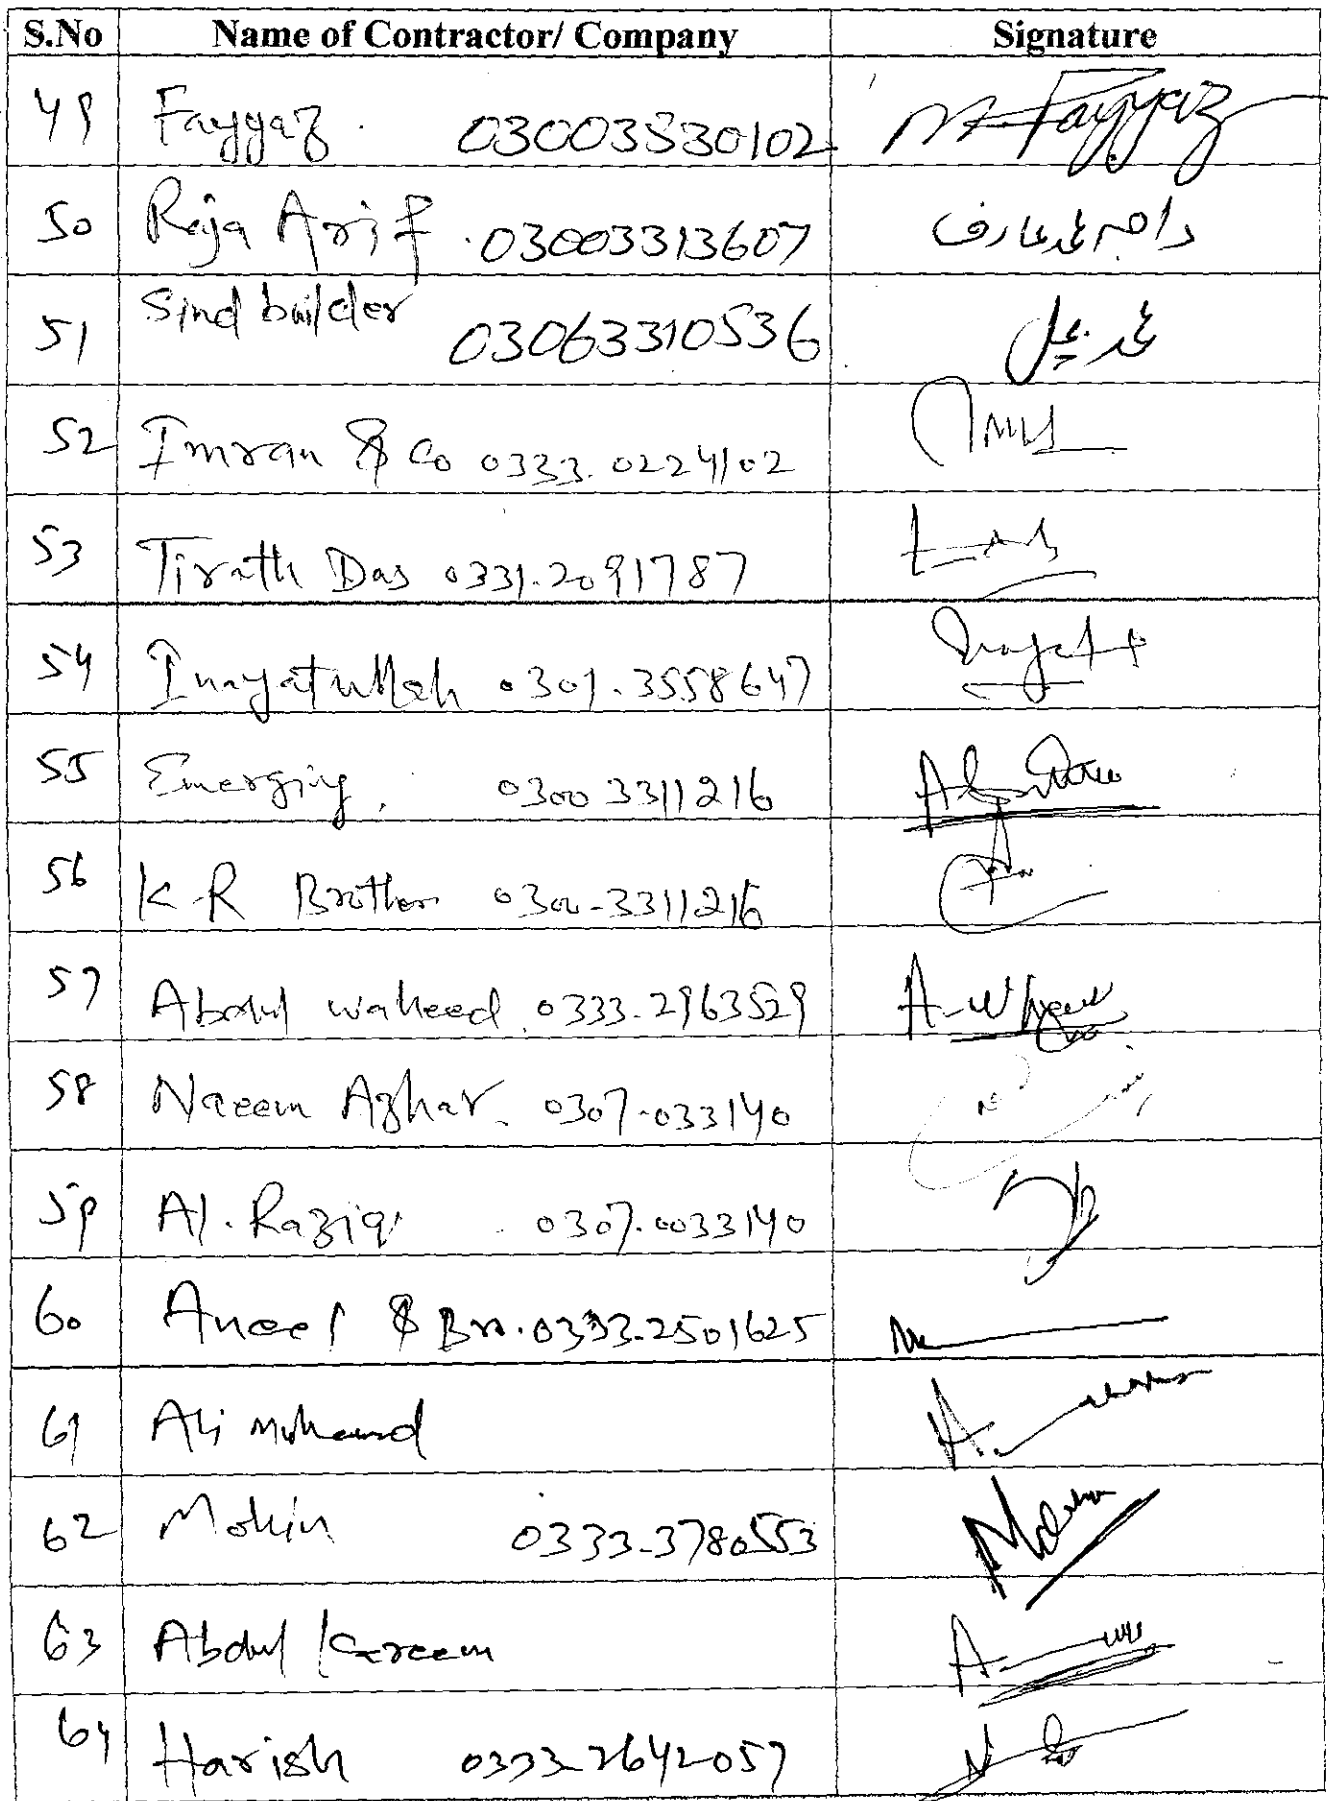 S.No Name of Contractor/ Company Signature
49 Fayyaz. 03003330102 M. Fayyaz
50 Raja Arif. 03003313607 راجہ محمد عارف
51 Sind builder 03063310536
52 Imran & Co 0333.0224102
53 Tirath Das 0331.2091787
54 Inayatullah 0301.3558647
55 Emerging. 0300 3311216
56 K.R Brothers 0300-3311216
57 Abdul waheed 0333-2963529
58 Naeem Azhar. 0307-033140
59 Al.Raziq 0307.0033140
60 Aneel & Bro. 0333.2501625
61 Ali Mohamd
62 Mohin 0333-3780553
63 Abdul Kareem
64 Harish 0333-2642057